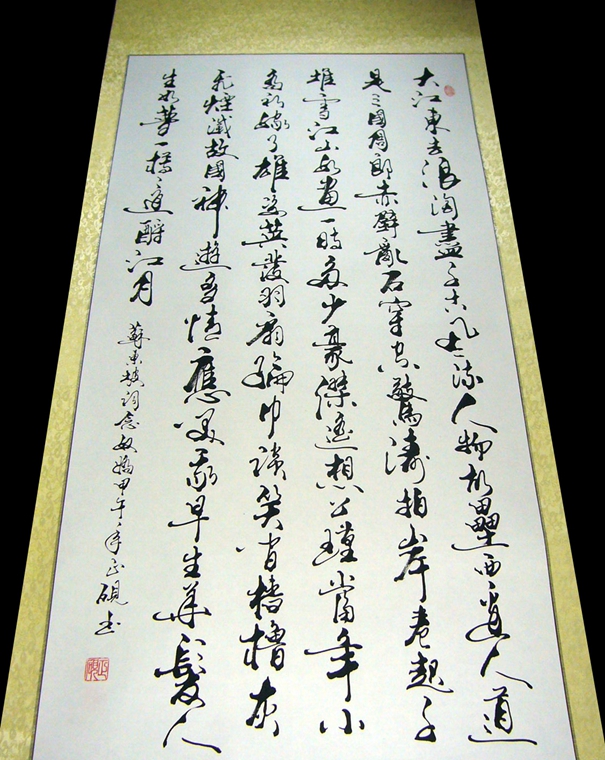 大江東去浪淘盡千古風流人物故壘西邊人道
是三國周郎赤壁亂石穿空驚濤拍岸卷起千
堆雪江山如畫一時多少豪傑遙想公瑾當年小
喬初嫁了雄姿英發羽扇綸巾談笑間檣櫓灰
飛煙滅故國神遊多情應笑我早生華髮人
生如夢一樽還酹江月
蘇東坡詞念奴嬌甲午年正硯書